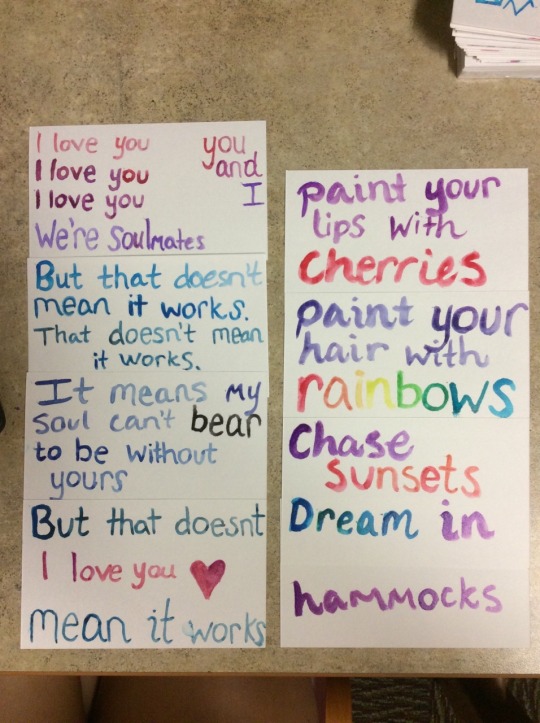 I love you
I love you
I love you
you
and
I
We're Soulmates
But that doesn't
mean it works.
That doesn't mean
it works.
It means my
soul can't bear
to be without
yours
But that doesnt
I love you
mean it works
paint your
lips with
cherries
paint your
hair with
rainbows
Chase
sunsets
Dream in
hammocks